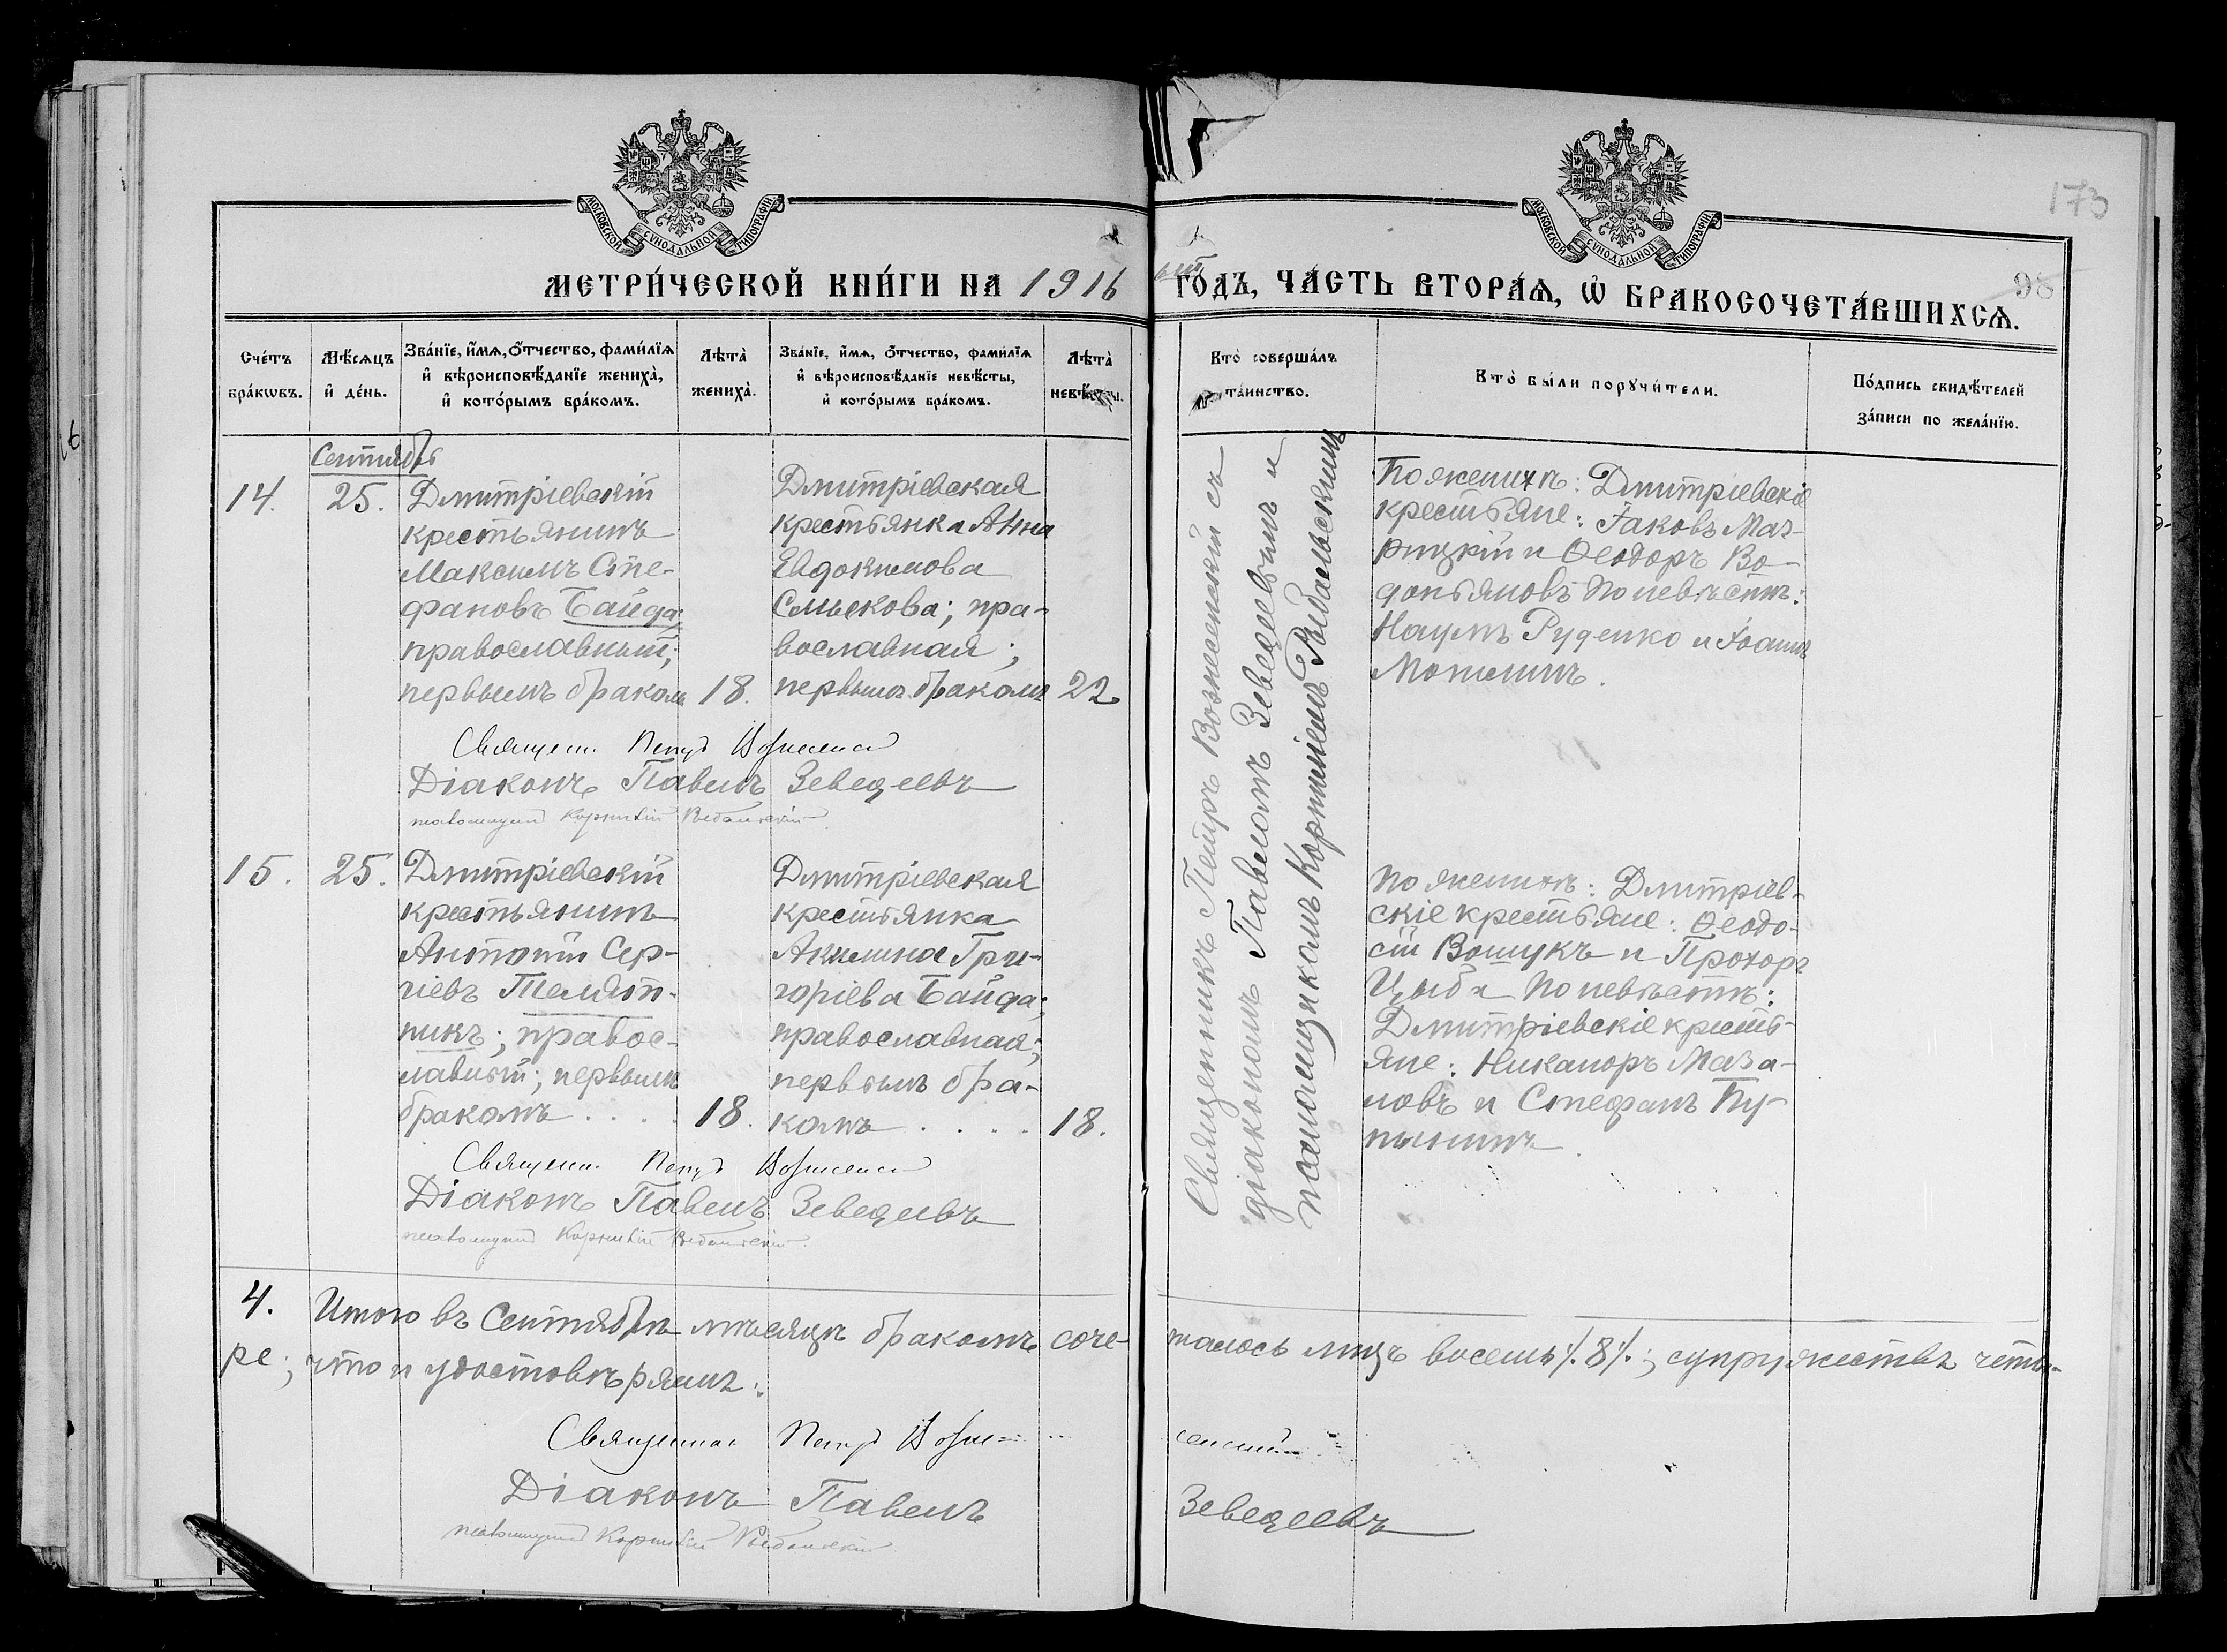 МОСКОВСКОЙ СѴНОДАЛЬНОЙ ТИПОГРАФІИ
МОСКОВСКОЙ СѴНОДАЛЬНОЙ ТИПОГРАФІИ
173
98
МЕТРИ́ЧЕСКОЙ КНИ́ГИ НА 1916 ГО́ДЪ, ЧА́СТЬ ВТОРА́Ѧ, Ѡ҆ БРАКОСОЧЕТА́ВШИХСѦ.
Сче́тъ бра́кѡвъ.
Мѣ́сѧцъ и҆ де́нь.
Зва́нїе, и҆́мѧ, ѻ҆́тчество, фами́лїѧ и҆ вѣроисповѣ́данїе жениха̀, и҆ кото́рымъ бра́комъ.
Лѣта̀ жениха̀.
Зва́нїе, и҆́мѧ, ѻ҆́тчество, фами́лїѧ и҆ вѣроисповѣ́данїе невѣ́сты, и҆ кото́рымъ бра́комъ.
Лѣта̀
Кто̀ соверша́лъ та́инство.
Кто̀ бы́ли порꙋчи́тели.
По́дпись свидѣ́телей за́писи по жела́нїю.
Сентябрь
14.
25.
Дмитріевскій
крестьянинъ
Максимъ Сте-
фановъ Байда;
православный;
первымъ бракомъ
18.
Дмитріевская
крестьянка Анна
Евдокимова
Смыкова; пра-
вославная;
первымъ бракомъ
22
Священникъ Петръ Вознесенскій съ
діакономъ Павломъ Зеведеевымъ и
псаломщикомъ Корниліемъ
По женихѣ: Дмитріевскіе
крестьяне: Іаковъ Маг-
рицкій и Ѳеодоръ Во-
допьяновъ По невѣстѣ:
Наумъ Руденко и Іоаннъ
Священ. Петръ
Діаконъ Павелъ Зеведеевъ
псаломщикъ Корнилій
15.
25.
Дмитріевскій
крестьянинъ
Антоній Сер-
гіевъ Телят-
никъ; правос-
лавный; первымъ
бракомъ . . . .
18.
Дмитріевская
крестьянка
Акилина Гри-
горіева Байда;
православная;
первымъ бра-
комъ . . . .
18.
По женихѣ: Дмитріев-
скіе крестьяне: Ѳеодо-
сій Вошукъ и Прохоръ
Цыба По невѣстѣ:
Дмитріевскіе кресть-
яне: Никаноръ Маза-
ловъ и Стефанъ Пу-
пынинъ.
Священ. Петръ
Діаконъ Павелъ Зеведеевъ
псаломщикъ Корнилій
4.
Итого въ Сентябрѣ мѣсяцѣ бракомъ сочеталось лицъ восемь /. 8 /.; супружествъ четы-
ре; что и удостовѣряемъ:
Священникъ Петръ Вознесенскій
Діаконъ Павелъ Зеведеевъ
псаломщикъ Корнилій